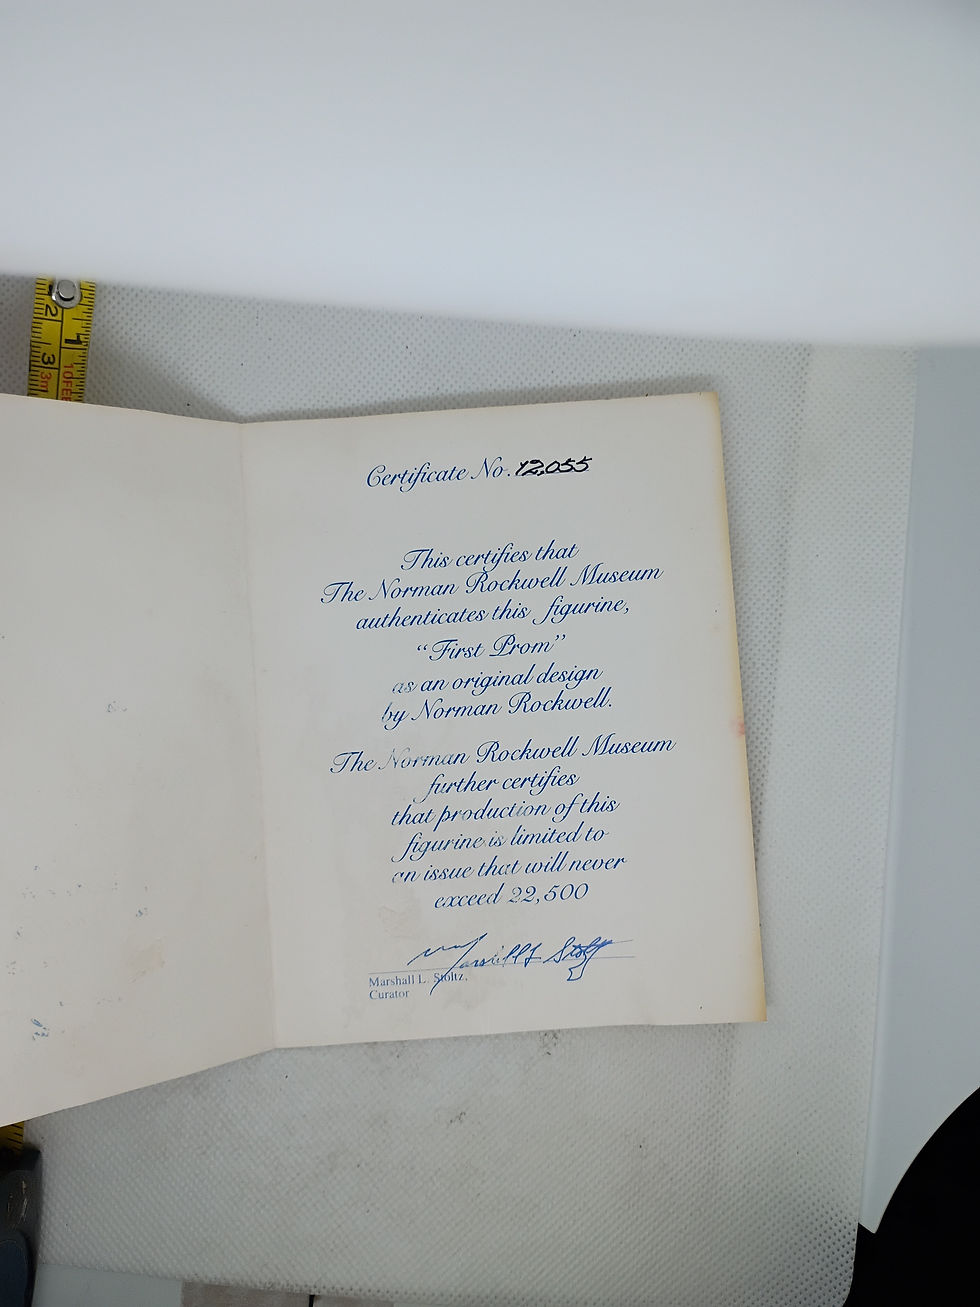 2
4
3
3m
10FE
Certificate No. 12,055
This certifies that
The Norman Rockwell Museum
authenticates this figurine,
“First Prom”
as an original design
by Norman Rockwell.
The Norman Rockwell Museum
further certifies
that production of this
figurine is limited to
an issue that will never
exceed 22,500
Marshall L. Stoltz
Marshall L. Stoltz,
Curator